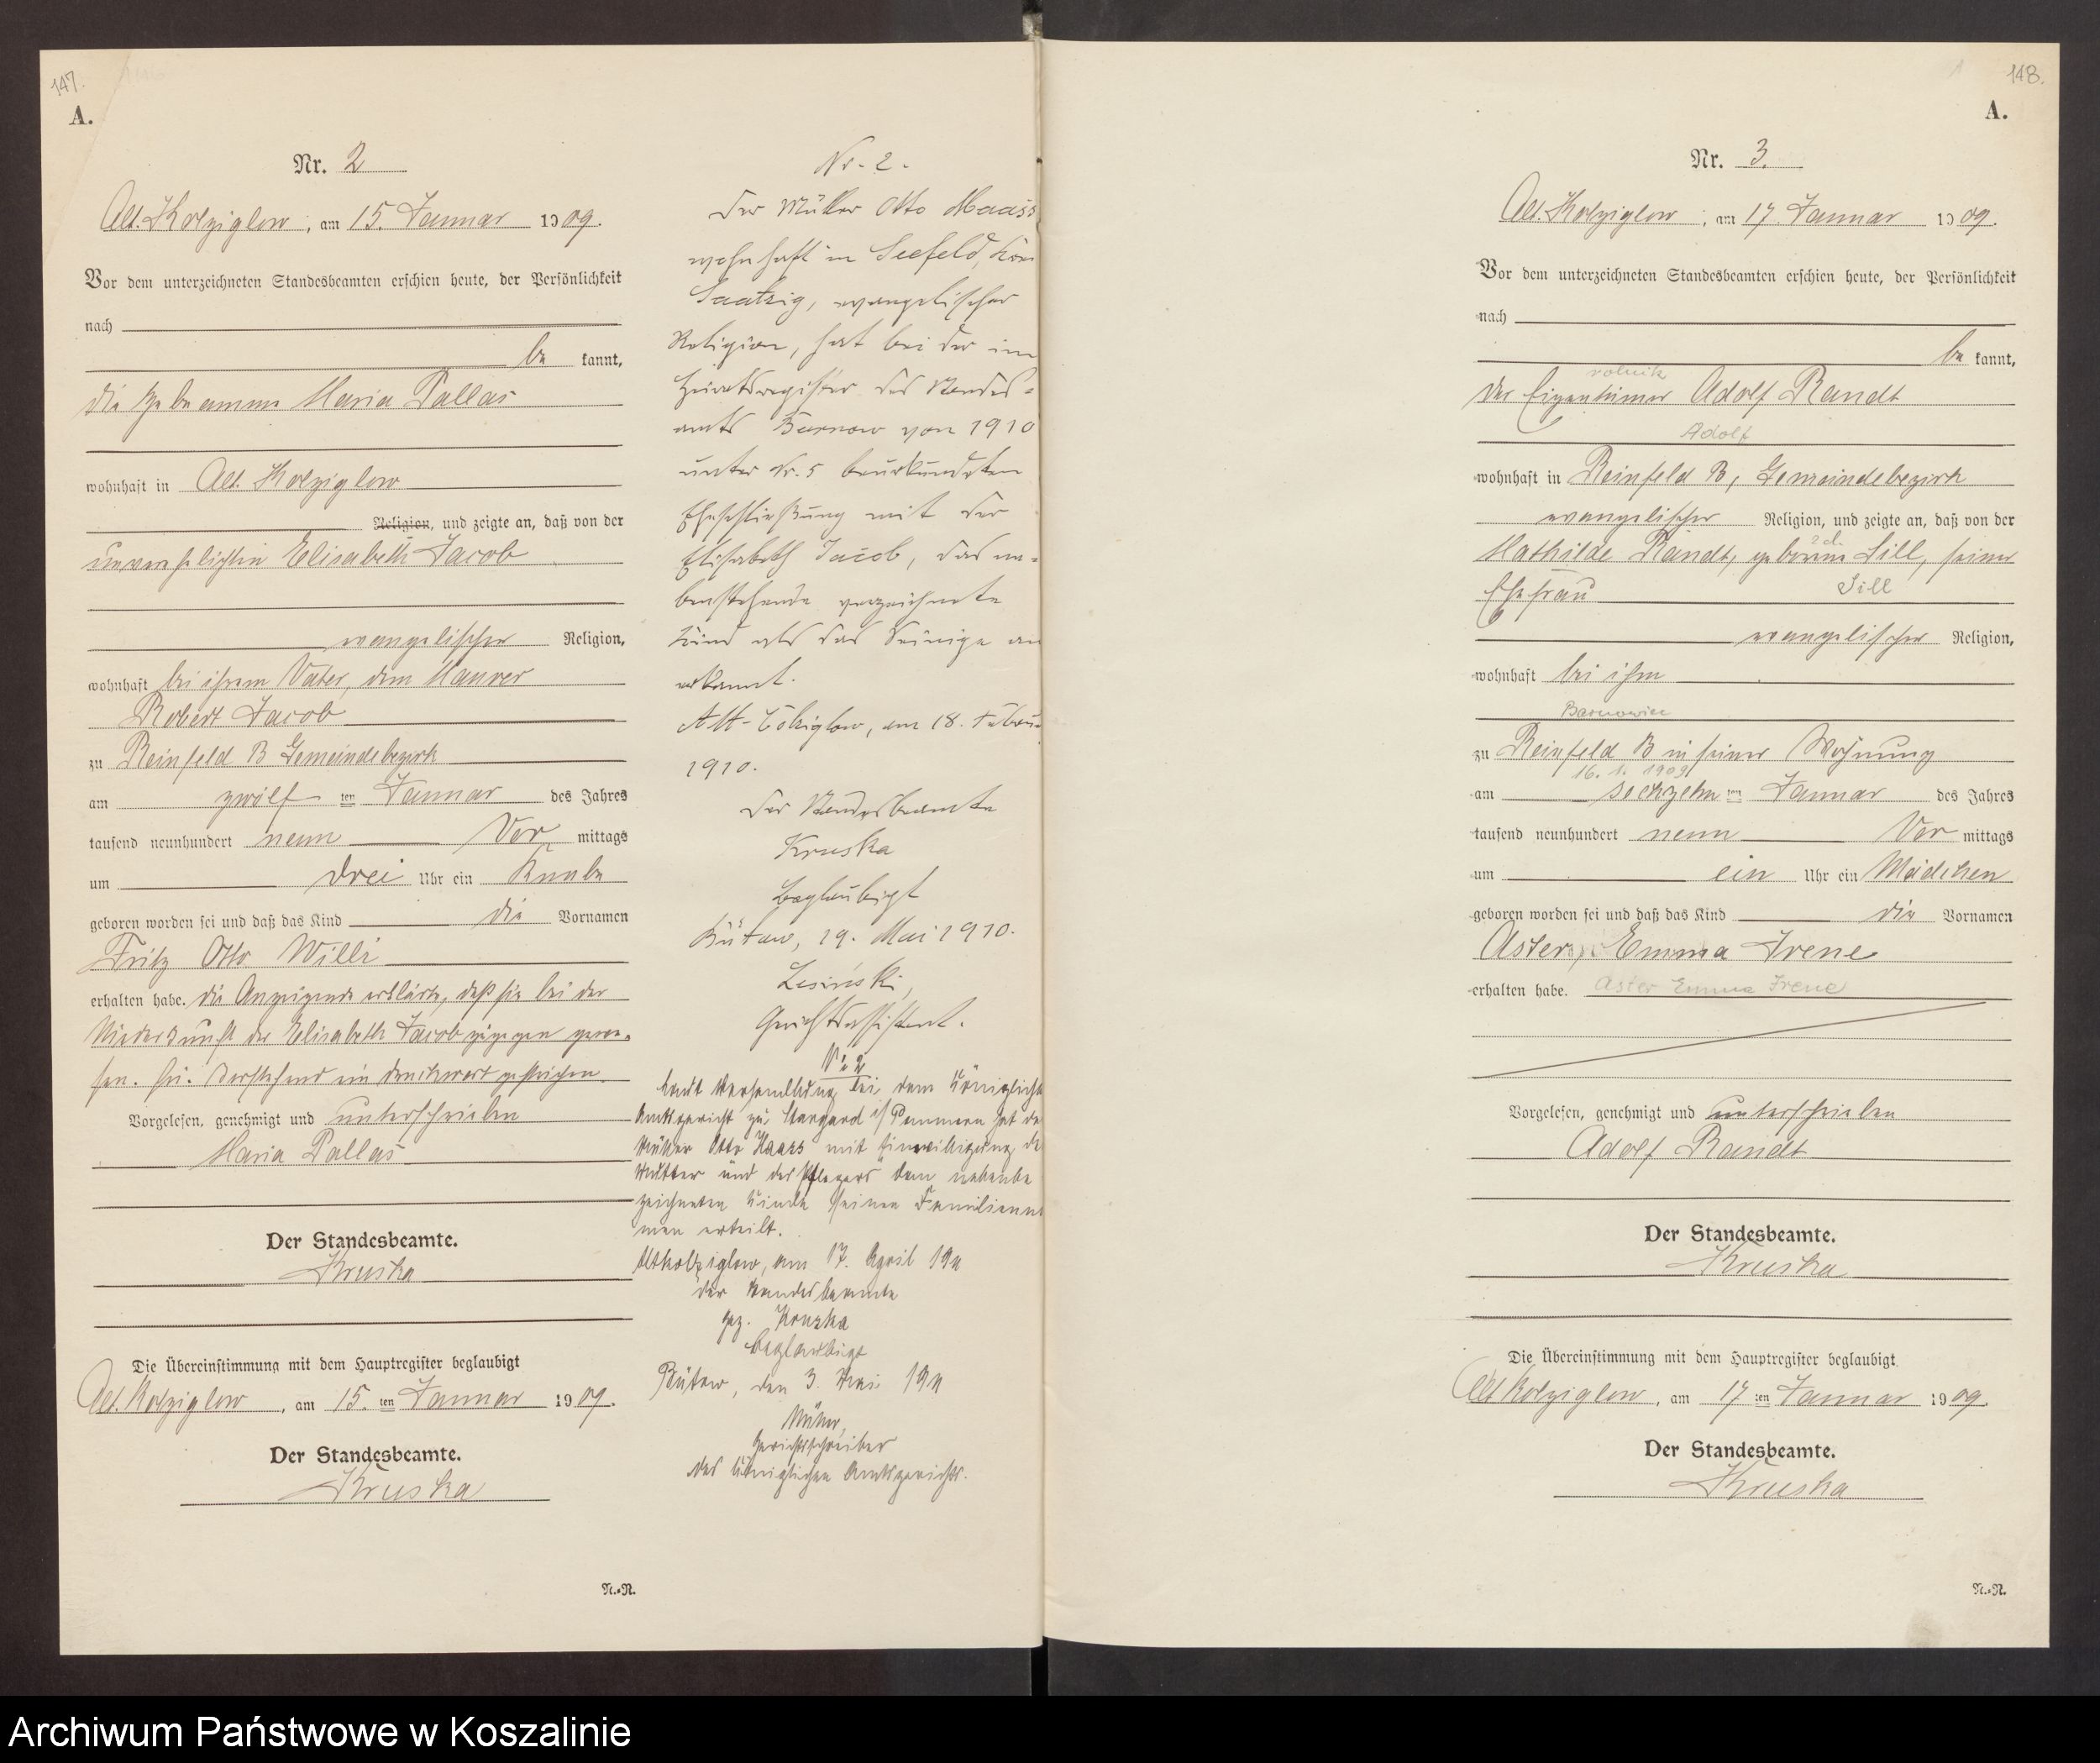 147.
A.
Nr. 2
Alt. Kolziglow, am 15. Januar 1909.
Vor dem unterzeichneten Standesbeamten erschien heute, der Persönlichkeit
nach
be kannt,
die Hebeamme Maria Pallas
wohnhaft in Alt. Kolziglow
Religion, und zeigte an, daß von der
unverehelichten Elisabeth Jacob
evangelischer Religion,
wohnhaft bei ihrem Vater, dem Maurer
Robert Jacob
zu Reinfeld B Gemeindebezirk
am zwölf ten Januar des Jahres
tausend neunhundert neun Vor mittags
um drei Uhr ein Knabe
geboren worden sei und daß das Kind die Vornamen
Fritz Otto Willi
erhalten habe. die Anzeigende erklärte, daß sie bei der
Niederkunft der Elisabeth Jacob zugegen gewe-
sen sei. Vorstehend ein Druckwort gestrichen.
Vorgelesen, genehmigt und unterschrieben
Maria Pallas
Der Standesbeamte.
Kruska
Die Übereinstimmung mit dem Hauptregister beglaubigt
Alt. Kolziglow, am 15. ten Januar 1909.
Der Standesbeamte.
Kruska
N.-N.
Nr. 2.
Der Müller Otto Maass
wohnhaft in Seefeld,
Saatzig, evangelischer
Religion, hat bei der im
Heiratsregister des Standes-
amts Bernow von 1910
unter Nr. 5 beurkundeten
Eheschließung mit der
Elisabeth Jacob, das ne-
benstehende verzeichnete
Kind als das Seinige an
erkannt.
Alt-Colziglow, am 18. Februa
1910.
Der Standesbeamte
Kruska
Beglaubigt
Bütow, 19. Mai 1910.
Lesinski,
Gerichtsassistent.
Nr. 2
Laut Verhandlung bei dem Königliche
Amtsgericht zu Stargard i/ Pommern hat de
Müller Otto Maass mit Einwilligung de
Mutter und des Pflegers dem nebenbe
zeichneten Kinde seinen Familienna
men erteilt.
Altkolziglow, am 17. April 1911
Der Standesbeamte
gez. Kruska
Beglaubigt
Bütow, den 3. Mai 1911
Gerichtsschreiber
des Königlichen Amtsgerichts.
148.
A.
Nr. 3.
Alt. Kolziglow, am 17 Januar 1909.
Vor dem unterzeichneten Standesbeamten erschien heute, der Persönlichkeit
nach
be kannt,
rolnik
der Eigentümer Adolf Randt
Adolf
wohnhaft in Reinfeld B, Gemeindebezirk
evangelischer Religion, und zeigte an, daß von der
Mathilde Randt, geborene Sill, seiner
Ehefrau Sill
evangelischer Religion,
wohnhaft bei ihm
Barnowiec
zu Reinfeld B in seiner Wohnung
16. 1. 1909
am sechzehn ten Januar des Jahres
tausend neunhundert neun Vor mittags
um ein Uhr ein Mädchen
geboren worden sei und daß das Kind die Vornamen
Aster, Emma Irene
erhalten habe. Aster Emma Irene
Vorgelesen, genehmigt und unterschrieben
Adolf Randt
Der Standesbeamte.
Kruska
Die Übereinstimmung mit dem Hauptregister beglaubigt
Alt Kolziglow, am 17 ten Januar 1909.
Der Standesbeamte.
Kruska
N.-N.
Archiwum Państwowe w Koszalinie